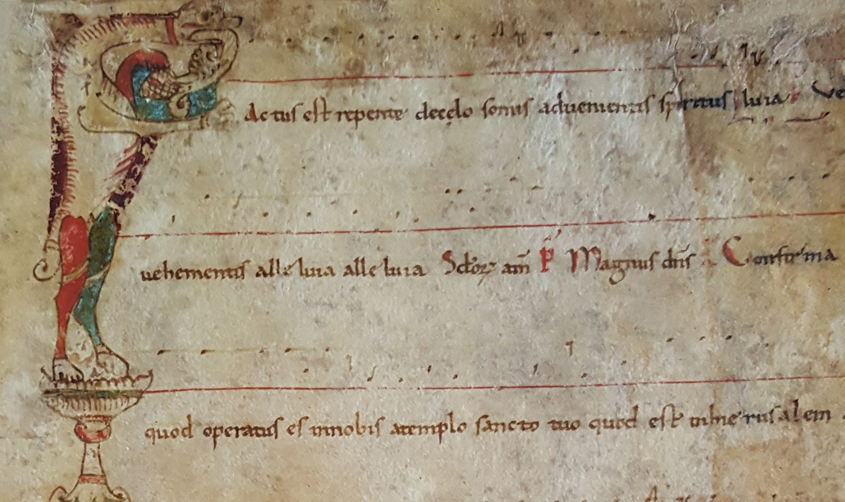 FActus est repente decelo sonus aduenientis spiritus luia Ve
uehementis alle luia alle luia Sctor am P Magnus dns Confirma
quod operatus es innobis atemplo sancto tuo quod est inhierusalem